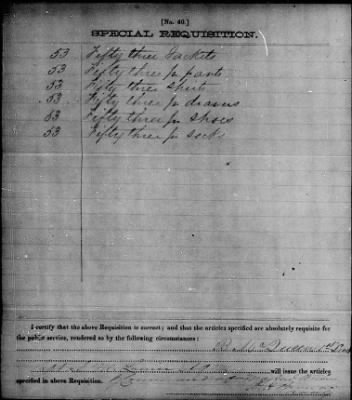 [No. 40.]
SPECIAL REQUISITION.
53 Fifty three Jackets
53 Fifty three pr pants
53 Fifty three shirts
53 Fifty three pr drawers
53 Fifty three pr shoes
53 Fifty three pr socks
I certify that the above Requisition is correct; and that the articles specified are absolutely requisite for
the public service, rendered so by the following circumstances:
will issue the articles
specified in above Requisition.